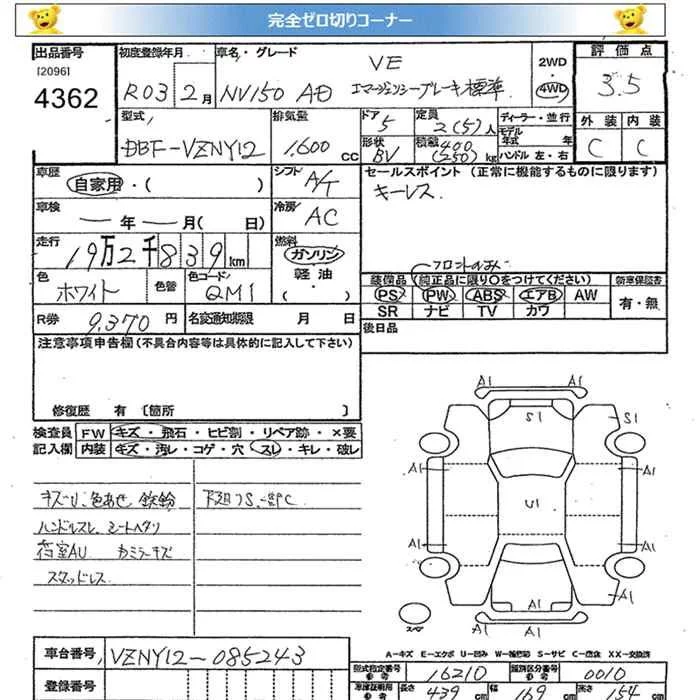 完全ゼロ切りコーナー
出品番号 初度登録年月 車名・グレード VE 2WD 評価点
[2096]
4362 R03 2月 NV150 AD エマージェンシーブレーキ標準 4WD 3.5
型式 排気量 ドア 定員 ディーラー・並行 外装 内装
DBF-VZNY12 1,600 cc 5 2(5)人 モデル年式 年 C C
形状 BV 積載 400 (250) kg ハンドル 左・右
車歴 自家用・( ) シフト A/T セールスポイント (正常に機能するものに限ります)
キーレス
車検 ー年ー月( 日) 冷房 AC
走行 19万2千839km 燃料 ガソリン
軽油
・( )
フロントのみ
色 ホワイト 色替 色コード QM1
装備品 (純正品に限り○をつけてください) 新車保証書
PS PW ABS エアB AW 有・無
SR ナビ TV カワ
R券 9,370円 名変通知期限 月 日 後日品
注意事項申告欄(不具合内容等は具体的に記入して下さい)
修復歴 有 〔箇所 〕
検査員 FW キズ・飛石・ヒビ割・リペア跡・×要
記入欄 内装 キズ・汚レ・コゲ・穴 スレ・キレ・破レ
キズ・U、色あせ 鉄鈴 下廻りS、一部PC
ハンドルスレ、シートヘタリ
荷室AU カミラーキズ
スタッドレス
A1 A1
S1 S1
A1 A1
U1
A1 A1
A1
A1 A1
スペア
A-キズ E-エクボ U-凹み W-補修跡 S-サビ C-腐食 XX-交換済
車台番号 VZNY12-085243
型式指定番号 参考 16210 類別区分番号 参考 0010
登録番号
車庫証明用 参考 長さ 439cm 幅 169cm 高さ 154cm